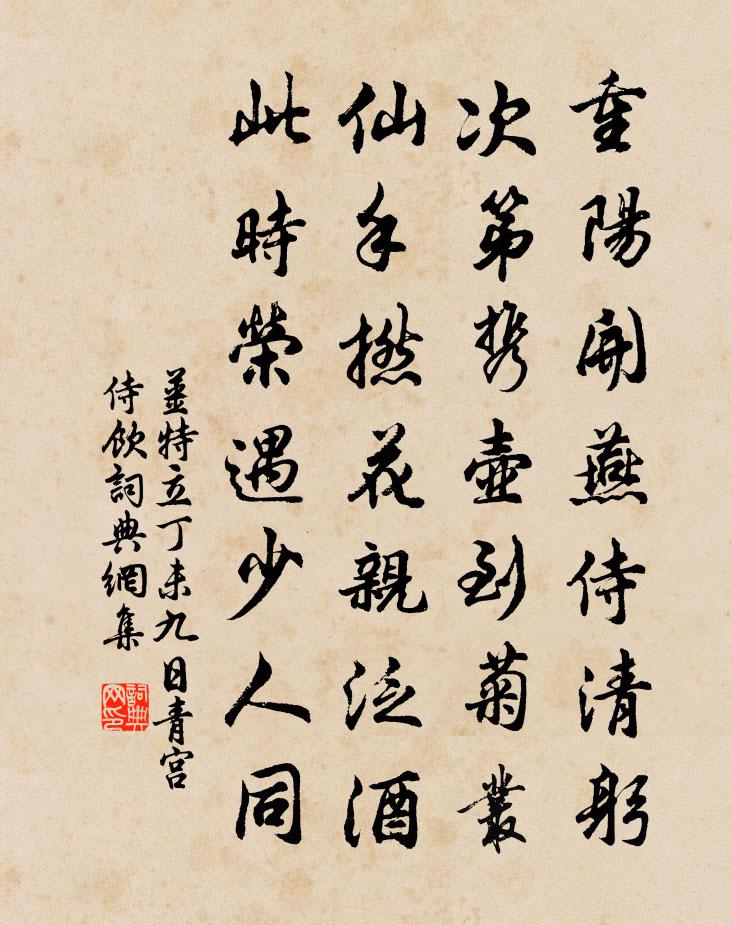 重陽開燕侍清躬
次第携壺到菊叢
仙手撚花親泛酒
此時榮遇少人同
姜特立丁未九日青宮
侍飲詞典網集
詞典網印